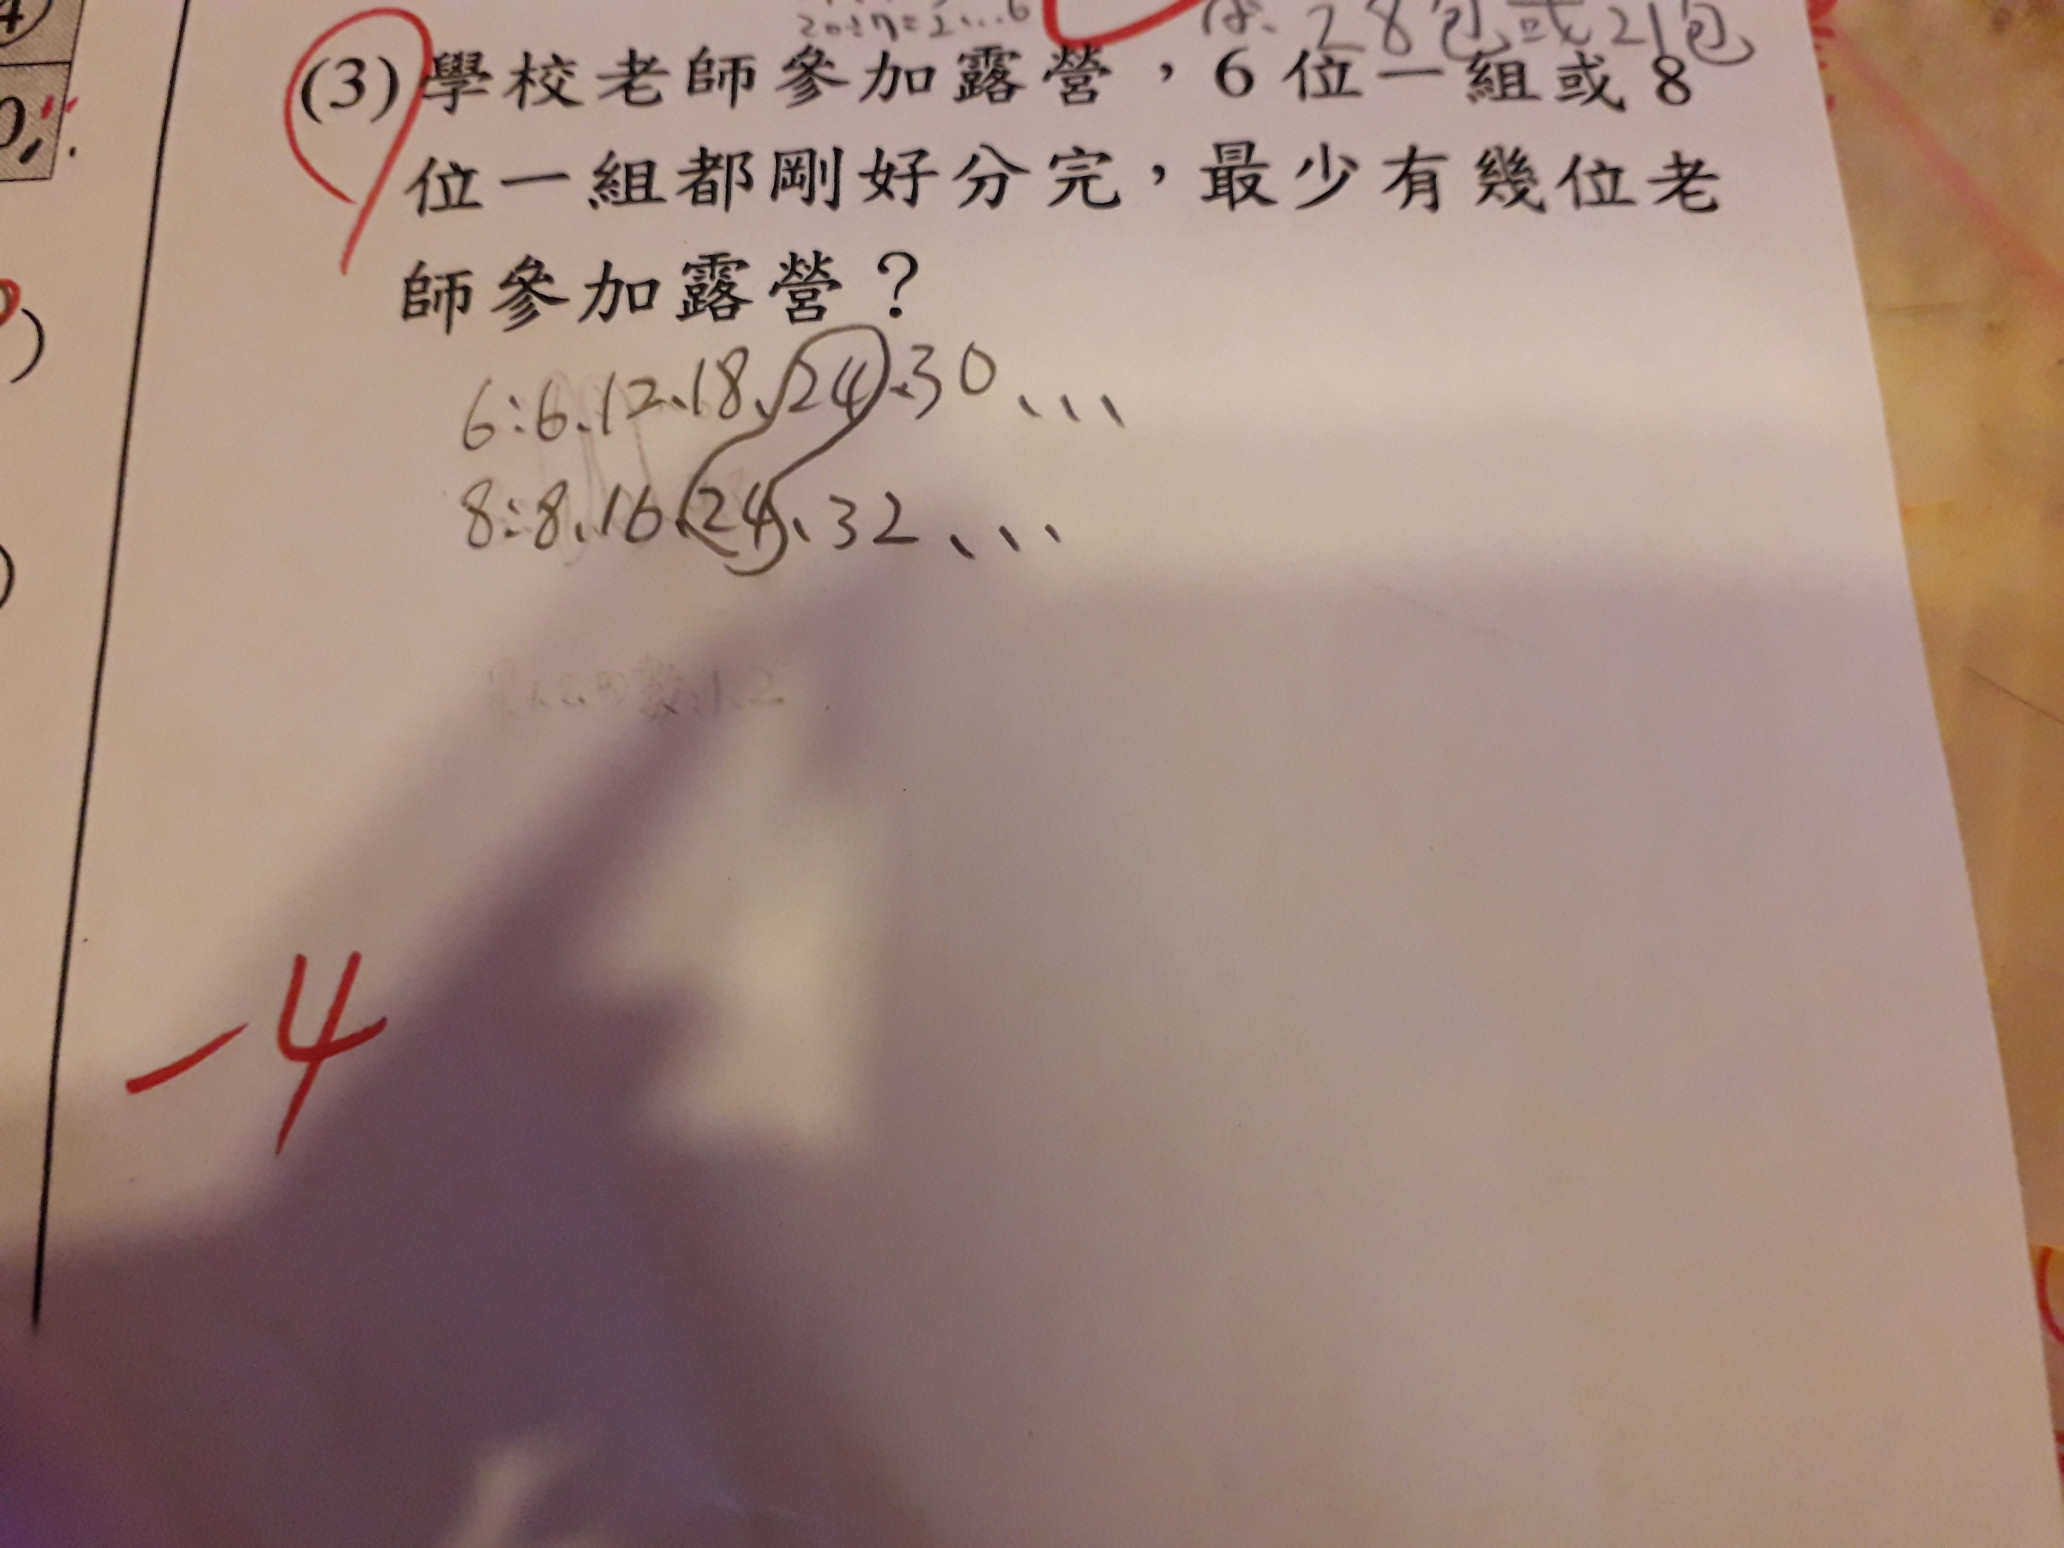 20÷7=2…6
28包或21包
(3)學校老師參加露營，6位一組或8
位一組都剛好分完，最少有幾位老
師參加露營？
6:6、12、18、24、30、、、
8:8、16、24、32、、、
-4